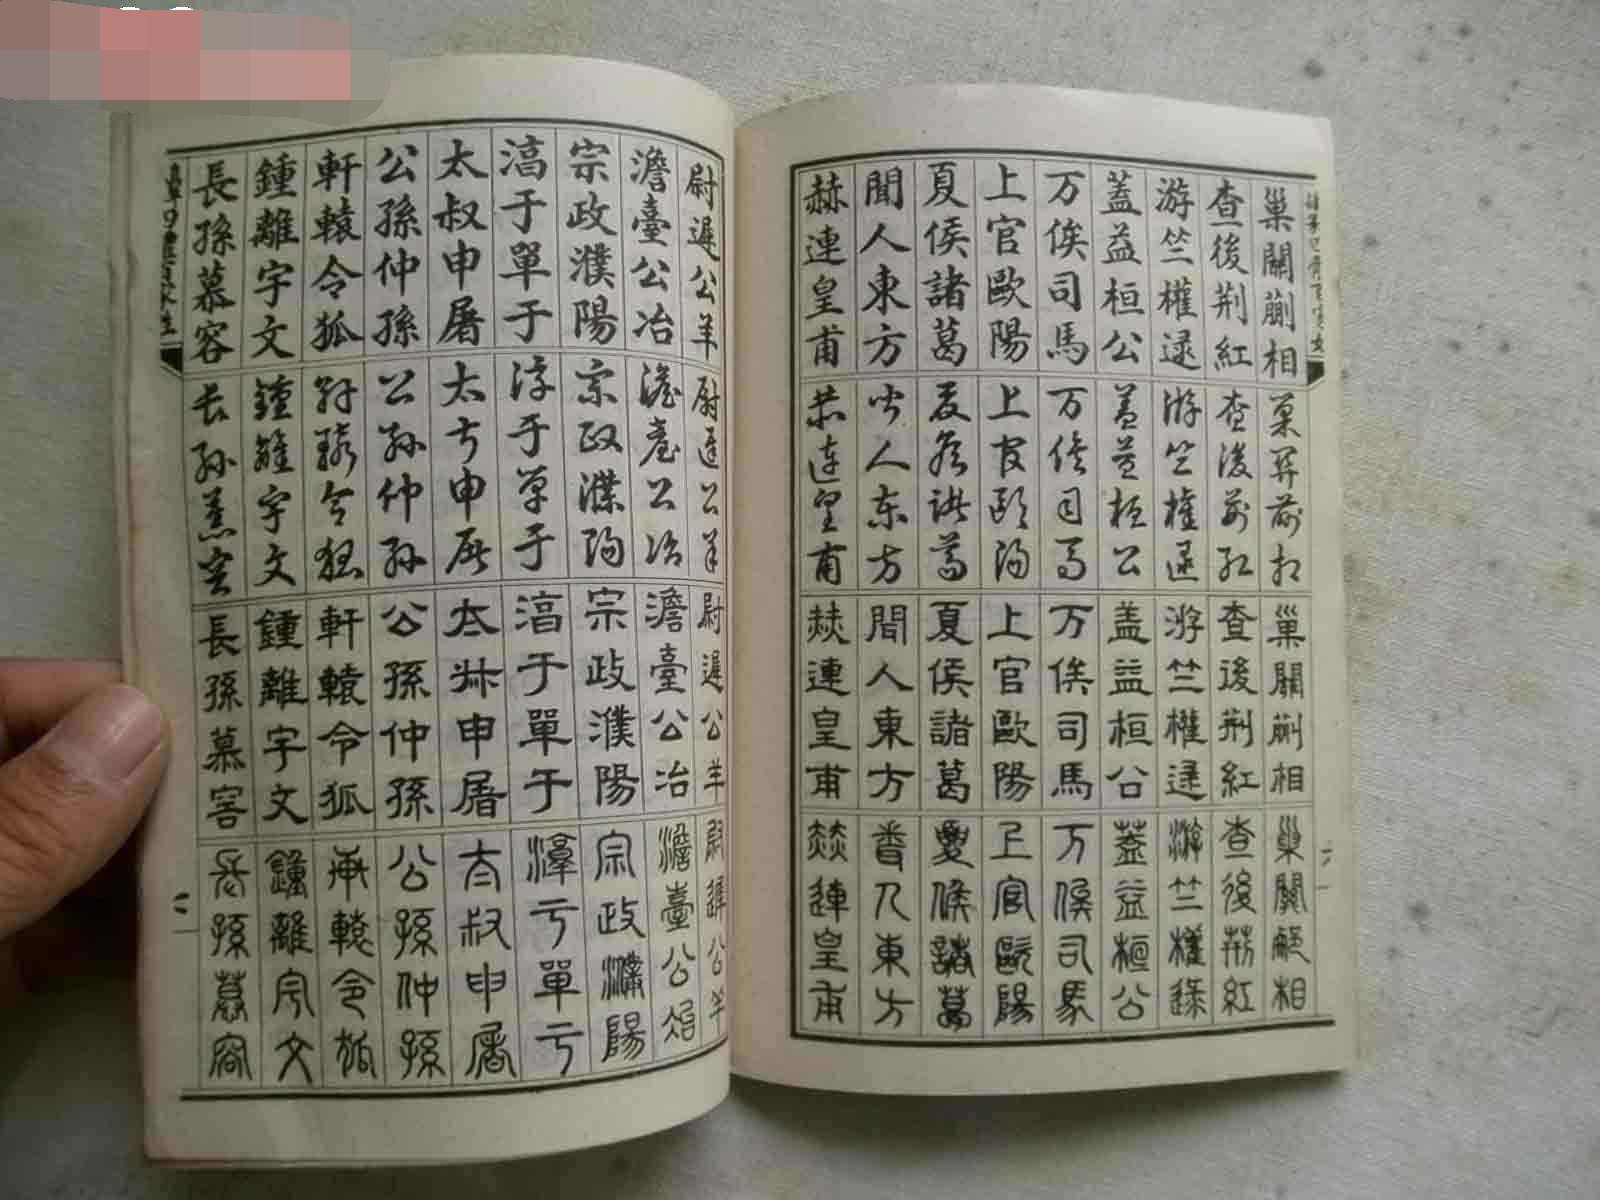 巢關蒯相
查後荆紅
游竺權逯
蓋益桓公
万俟司馬
上官歐陽
夏侯諸葛
聞人東方
赫連皇甫
巢關蒯相
查後荆紅
游竺權逯
蓋益桓公
万俟司馬
上官歐陽
夏侯諸葛
聞人東方
赫連皇甫
巢關蒯相
查後荆紅
游竺權逯
盖益桓公
万俟司馬
上官歐陽
夏侯諸葛
聞人東方
赫連皇甫
巢關蒯相
查後荆紅
游竺權逯
蓋益桓公
万俟司馬
上官歐陽
夏侯諸葛
聞人東方
赫連皇甫
尉遲公羊
澹臺公冶
宗政濮陽
淳于單于
太叔申屠
公孫仲孫
軒轅令狐
鍾離宇文
長孫慕容
尉遲公羊
澹臺公冶
宗政濮陽
淳于單于
太叔申屠
公孫仲孫
軒轅令狐
鍾離宇文
長孫慕容
尉遲公羊
澹臺公冶
宗政濮陽
淳于單于
太叔申屠
公孫仲孫
軒轅令狐
鍾離宇文
長孫慕容
尉遲公羊
澹臺公冶
宗政濮陽
淳于單于
太叔申屠
公孫仲孫
軒轅令狐
鍾離宇文
長孫慕容